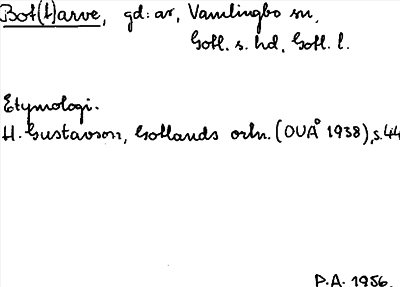 Bot(t)arve, gd: ar, Vamlingbo sn,
Gotl. s. hd, Gotl. l.
Etymologi.
H. Gustavson, Gotlands ortn. (OUÅ 1938), s. 44
P.A. 1956.